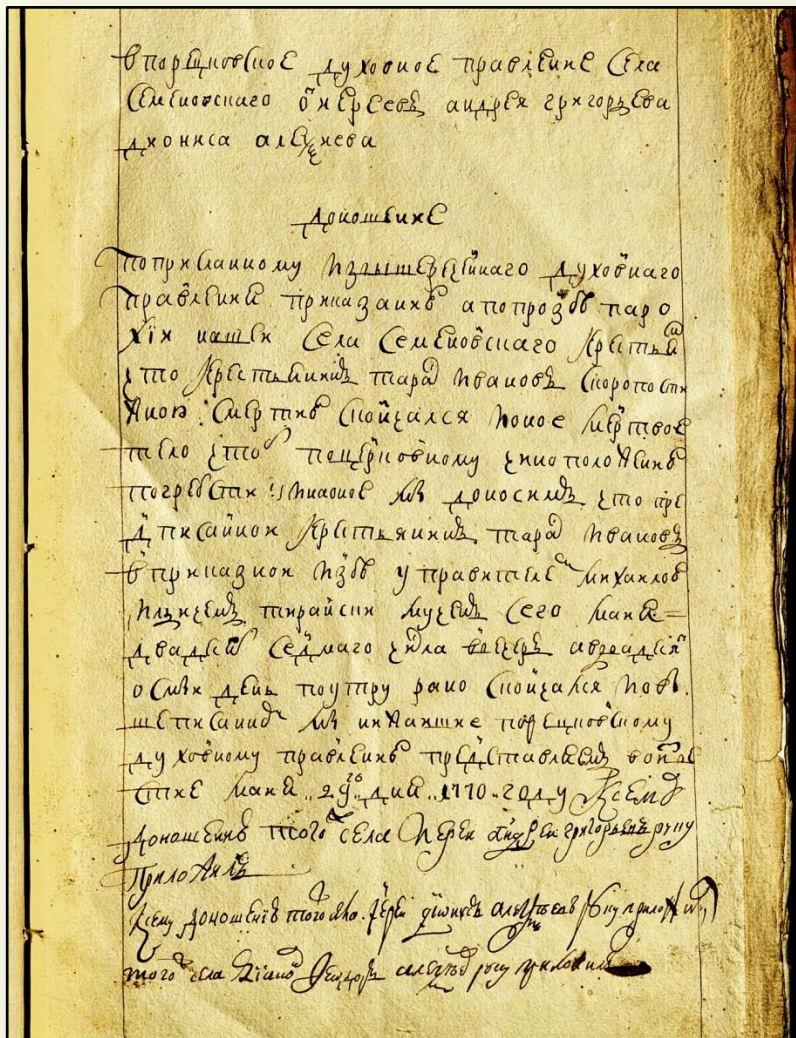 в порецковское духовное правление села
Семеновского от иереевъ андрея григорьева
диониса алеѯиева
доношение
По присланному из вышереченнаго духовнаго
правления приказанию а по прозбѣ паро
хїи нашеи села Семеновского крестьян
что крестьянинъ тарас Ивановъ скоропости
жною смертию скончался и оное мертвое
тело чтоб по церковному чиноположению
погребсти: и на оное мы доносимъ что пре
д писаннои крестьянинъ тарас Ивановъ
в приказнои избѣ управителем михаилою
тирански мученъ сего маия =
двадцеть седмаго числа вечеръ а
осмы день поутру рано скончался и о
шеписанном мы нижаише порецковскому
духовному правлению представляемъ
маия 29го дня 1770 году К сему
доношению того села Иереи андреи григорьевъ руку
приложилъ
К сему доношению того села Иереи дионисеи алеѯеевъ руку приложилъ
того села диаконъ алеѯеевъ руку приложилъ